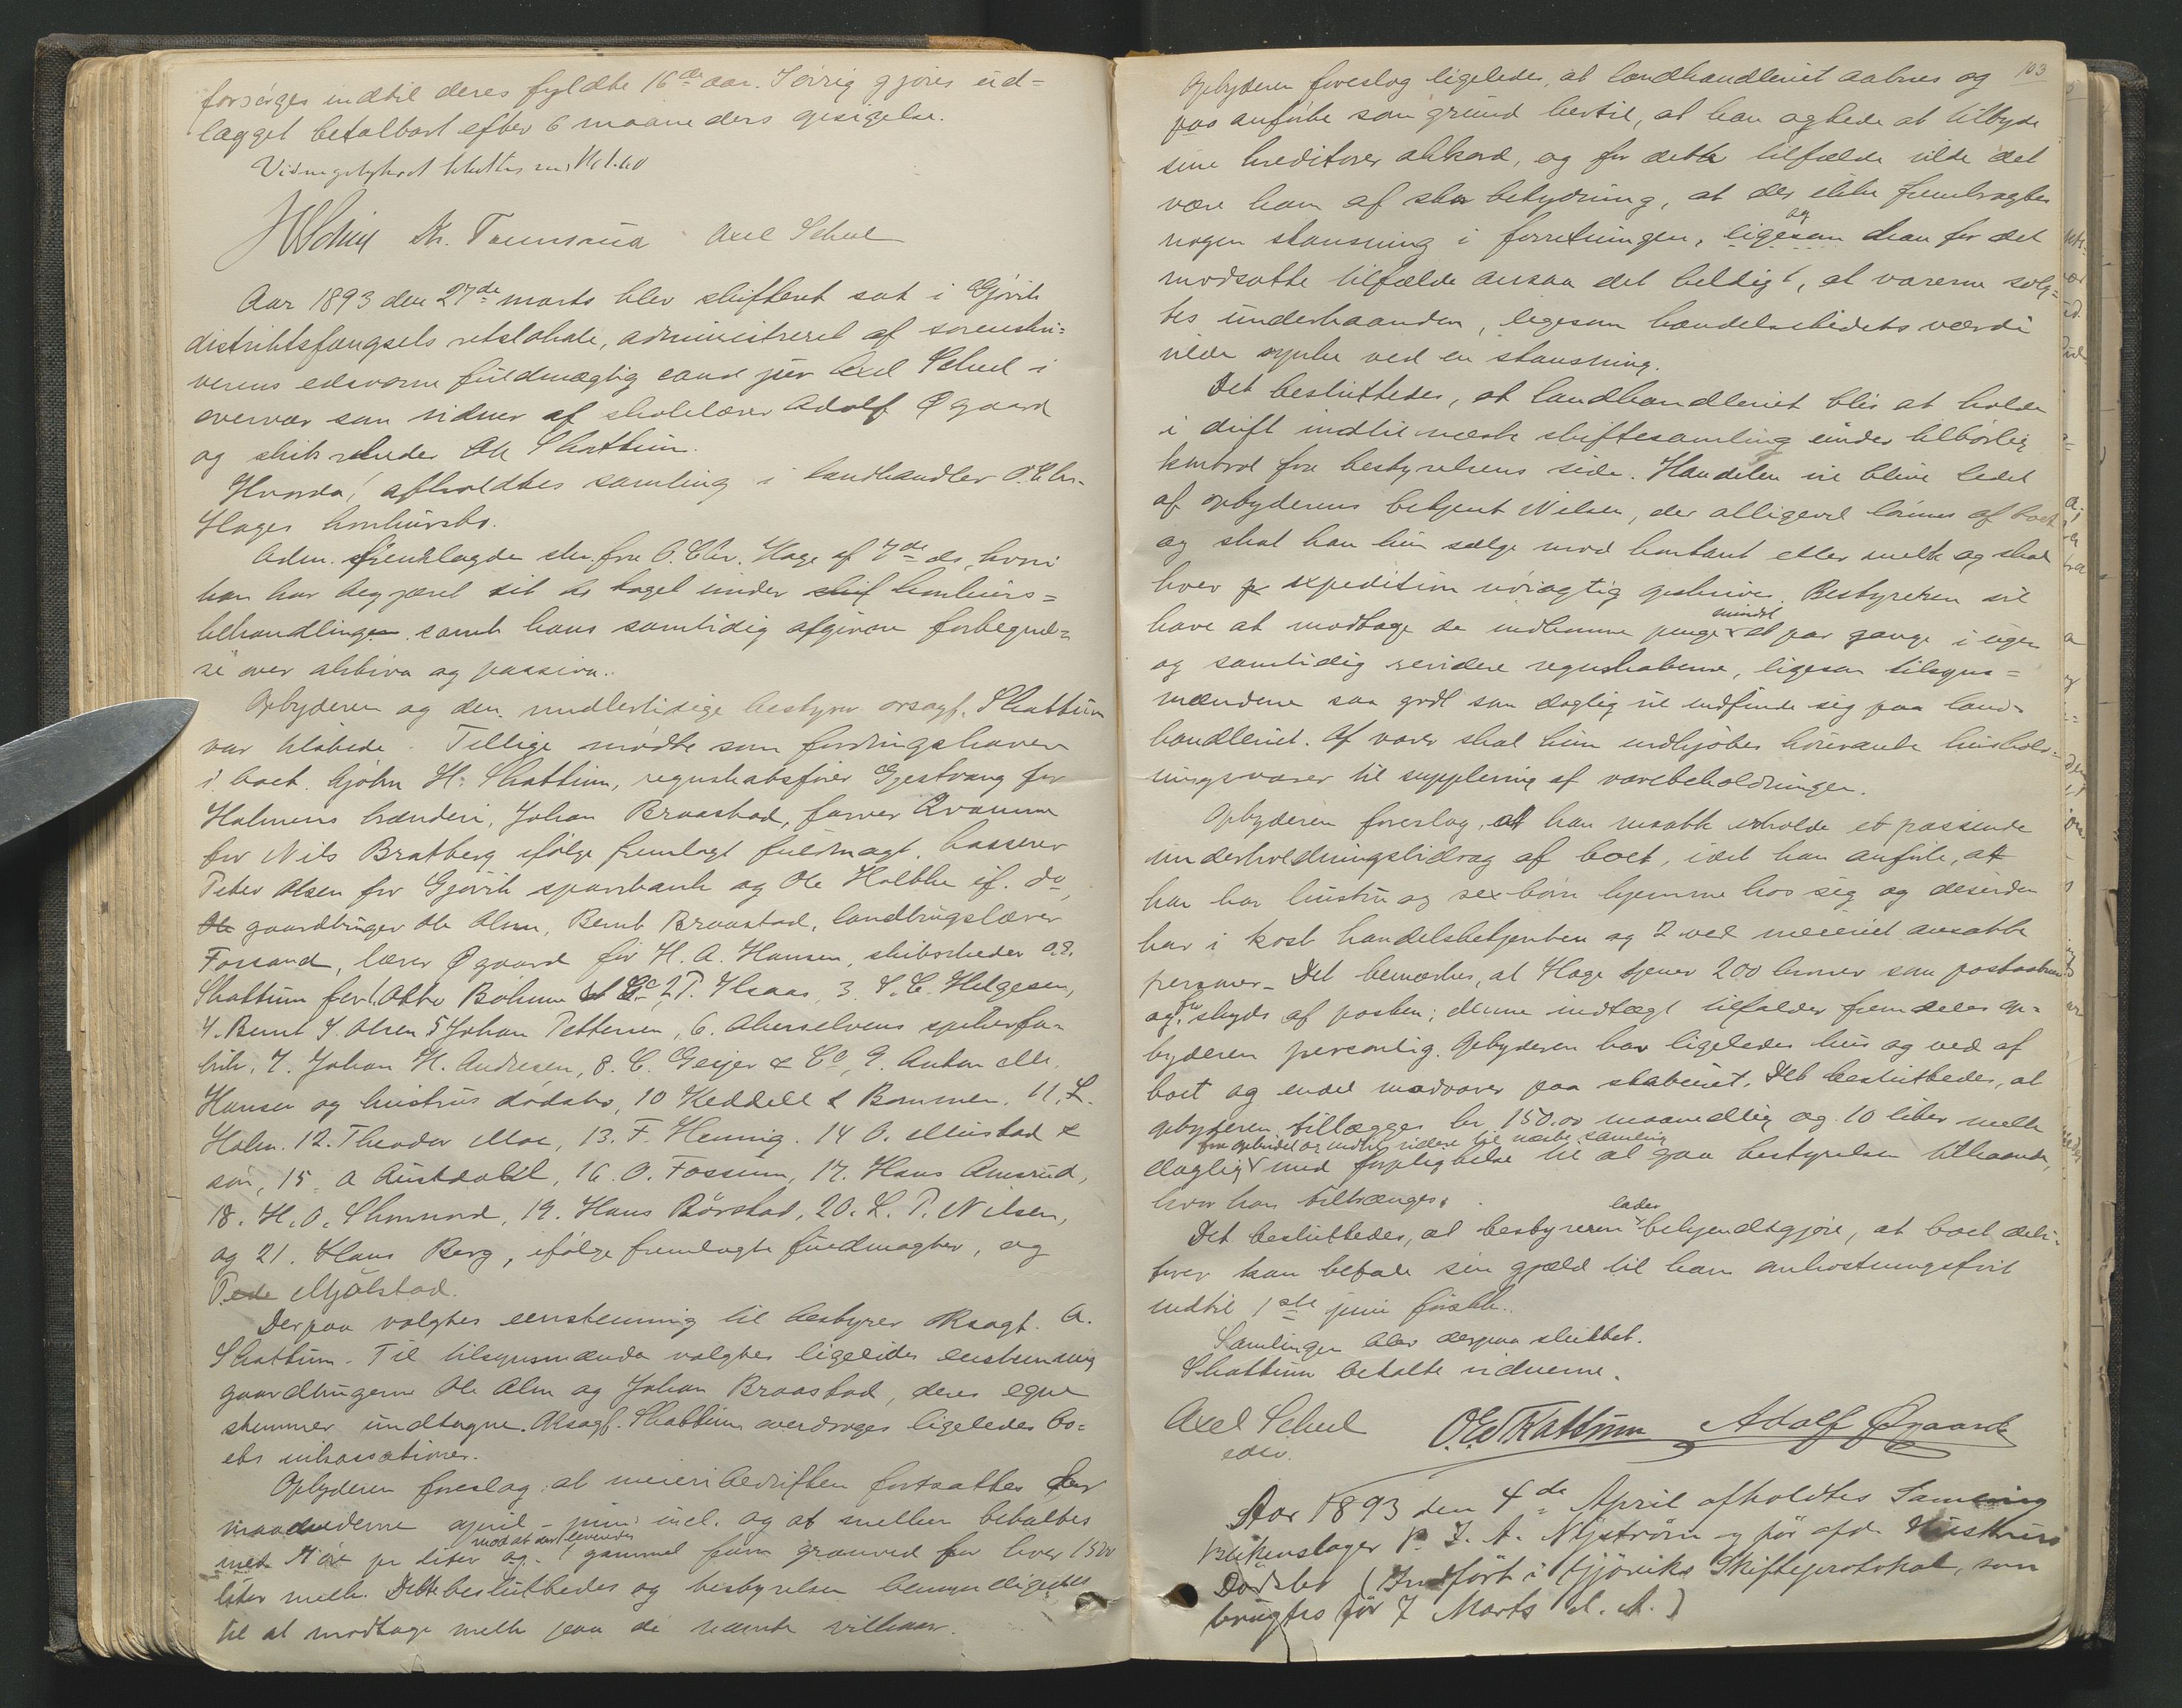 forsørges indtil deres fyldte 16de aar. Iøvrig gjøres ud=
lægget betalbart efter 6 maaneders opsigelse.
Vidnegodtgjørelse
Kr. Axel Schul
Aar 1893 den 27de marts blev skifteret sat i Gjøvik
distriktsfængsels retslokale, administreret af sorenskri=
verens edsvorne fuldmægtig cand jur Axel Schul i
overvær som vidner af skolelærer Adolf Øgaard
og skibsreder Ole Skattum.
Hvorda! afholdtes samling i landhandler O. Chr.
Hages konkursbo.
Adm. fremlagde skr. fra O. Chr. Hage af 7de ds, hvori
han har begjæret sit bo taget under skif konkurs=
behandlingen samt hans samtidig afgivne forbegne=
se over aktiva og passiva.
Opbyderen og den midlertidige bestyrer orsagf. Skattum
var tilstede. Tillige mødte som fordringshavere
i boet. Gjohn H. Skattum, regnskabsfører Gjestvang for
Holmens brænderi, Johan Braastad, farver Qvamme
for Nils Bratberg ifølge fremlagt fuldmagt, kasserer
Peter Olsen for Gjøvik sparebank og Ole Holthe if. do,
Ole gaardbruger Ole Alm, Bernt Braastad, landbrugslærer
Fossand, lærer Øgaard for H. A. Hansen, skibsreder O.E.
Skattum for 1. Otto Böhme & Co 2 P. Ihsaas, 3. S. C. Helgesen,
4. Bernt S. Olsen 5 Johan Pettersen, 6. Akerselvens spikerfa=
brik, 7. Johan H. Andresen, 8. C. Geijer & Co, 9. Anton Chr.
Hansen og hustrus dødsbo, 10 Keddell & Bommen. 11. L.
Holm. 12. Theodor Moe, 13. F. Hennig. 14 O. Mustad &
søn, 15. A Austdahl, 16. O. Fossum, 17. Hans Amsrud,
18. H. O. 19. Hans Børstad, 20. L. P. Nilsen,
og 21. Klaus Berg, ifølge fremlagte fuldmagter, og
Peder Mjølstad.
Derpaa valgtes eenstemmig til bestyrer Orsagf. A.
Skattum. Til tilsynsmænda valgtes ligeledes enstemmig
gaardbrugerne Ole Alm og Johan Braastad, deres egne
stemmer undtagne. Orsagf. Skattum overdroges ligeledes bo=
ets inkassationer.
Opbyderen foreslog at meieribedriften fortsattes for
maanederne april - juni incl. og at melken betaltes
mod at der leveredes
med 7 øre pr liter og gammel favn granved for hver 1500
liter melk. Dette besluttedes og bestyrelsen bemyndigedes
til at modtage melk paa de nævnte vilkaar.
103
Opbyderen foreslog ligeledes, at landhandleriet aabnes og
paa anførte som grund hertil, at han agtede at tilbyde
sine kreditorer akkord, og for dette tilfælde vilde det
være ham af stor betydning, at der ikke frembragtes
og
nogen stansning i forretningen, ligesom han for det
modsatte tilfælde ansaa det heldigt, at varerne solg=
tes underhaanden, ligesom handelsstedets værdi
vilde synke ved en stansning.
Det besluttedes, at landhandleriet blir at holde
i drift indtil næste skiftesamling under tilbørlig
kontrol fra bestyrelsens side. Handelen vil blive ledet
af opbyderens betjent Nilsen, der alligevel lønnes af boet
og skal han kun sælge mod kontant eller melk og skal
hver expedition nøiagtig opskrives. Bestyreren vil
mindst
have at modtage de indkomne penge et par gange i ugen
og samtidig revidere regnskaberne, ligesom tilsyns=
mændene saa godt som daglig vil indfinde sig paa land=
handleriet. Af varer skal kun indkjøbes kurante hushold=
ningsvarer til supplering af varebeholdningen.
Opbyderen foreslog, at han maatte erholde et passende
underholdningsbidrag af boet, idet han anførte, at
han har hustru og sex børn hjemme hos sig og desuden
har i kost handelsbetjenten og 2 ved meieriet ansatte
personer. Det bemærkes, at Hage tjener 200 kroner som postaabner
for
og skyds af posten; denne indtægt tilfalder fremdeles op=
byderen personlig. Opbyderen har ligeledes hus og ved af
boet og endel madvarer paa stabburet. Det besluttedes, at
opbyderen tillægges kr. 150.00 maanedlig og 10 liter melk
fra opbudet og indtil videre til næste samling
daglig med forpligtelse til at gaa bestyrelsen tilhaande,
hvor han tiltrænges.
lader
Det besluttedes, at bestyreren bekjendtgjøre, at boets debi=
torer kan betale sin gjæld til ham omkostningsfrit
indtil 1ste juni førstk.
Samlingen blev derpaa sluttet.
Skattum betalte vidnerne.
Axel Schul O. E. Skattum Adolf Øgaard
edsv.
Aar 1893 den 4de April afholdtes Samling
Blikenslager P. J. A. Nyström og før afd. Hustrus
Dødsbo (Indført i Gjøviks Skifteprotokol, som
brugtes før 7 Marts d. A.)